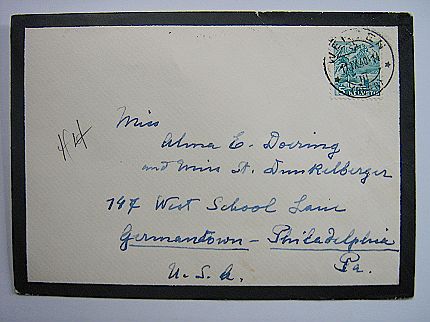 WEINFELDEN
Miss
Alma E. Doering
and Miss St. Dunkelberger
147 West School Lane
Germantown - Philadelphia
U.S.A. Pa.